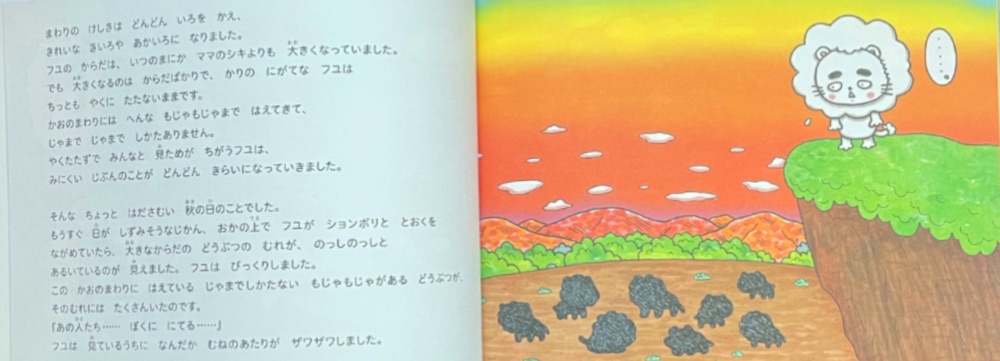 まわりの けしきは どんどん いろを かえ、
きれいな きいろや あかいろに なりました。
フユの からだは、いつのまにか ママのシキよりも 大きくなっていました。
でも 大きくなるのは からだばかりで、かりの にがてな フユは
ちっとも やくに たたないままです。
かおのまわりには へんな もじゃもじゃまで はえてきて、
じゃまで じゃまで しかたありません。
やくたたずで みんなと 見ためが ちがうフユは、
みにくい じぶんのことが どんどん きらいになっていきました。
そんな ちょっと はださむい 秋の日のことでした。
もうすぐ 日が しずみそうなじかん、おかの上で フユが ションボリと とおくを
ながめていたら、大きなからだの どうぶつの むれが、のっしのっしと
あるいているのが 見えました。フユは びっくりしました。
この かおのまわりに はえている じゃまでしかたない もじゃもじゃがある どうぶつが、
そのむれには たくさんいたのです。
「あの人たち…… ぼくに にてる……」
フユは 見ているうちに なんだか むねのあたりが ザワザワしました。